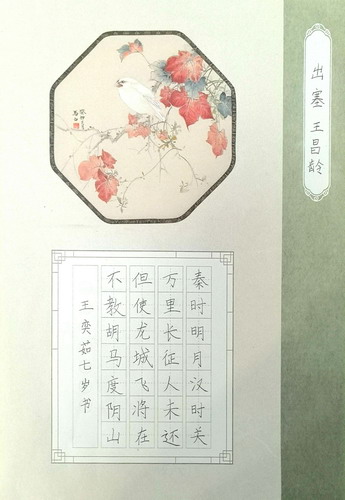 出塞 王昌龄
秦时明月汉时关
万里长征人未还
但使龙城飞将在
不教胡马度阴山
王奕茹七岁书